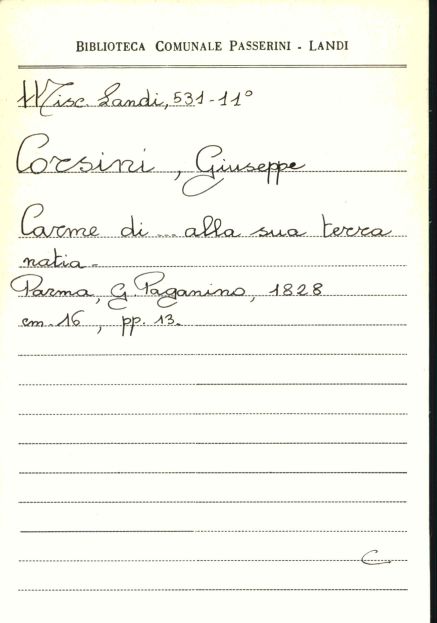 BIBLIOTECA COMUNALE PASSERINI - LANDI
Misc. Landi, 531-11°
Corsini, Giuseppe
Carme di ... alla sua terra
natia.
Parma, G. Paganino, 1828
cm. 16, pp. 13.
C